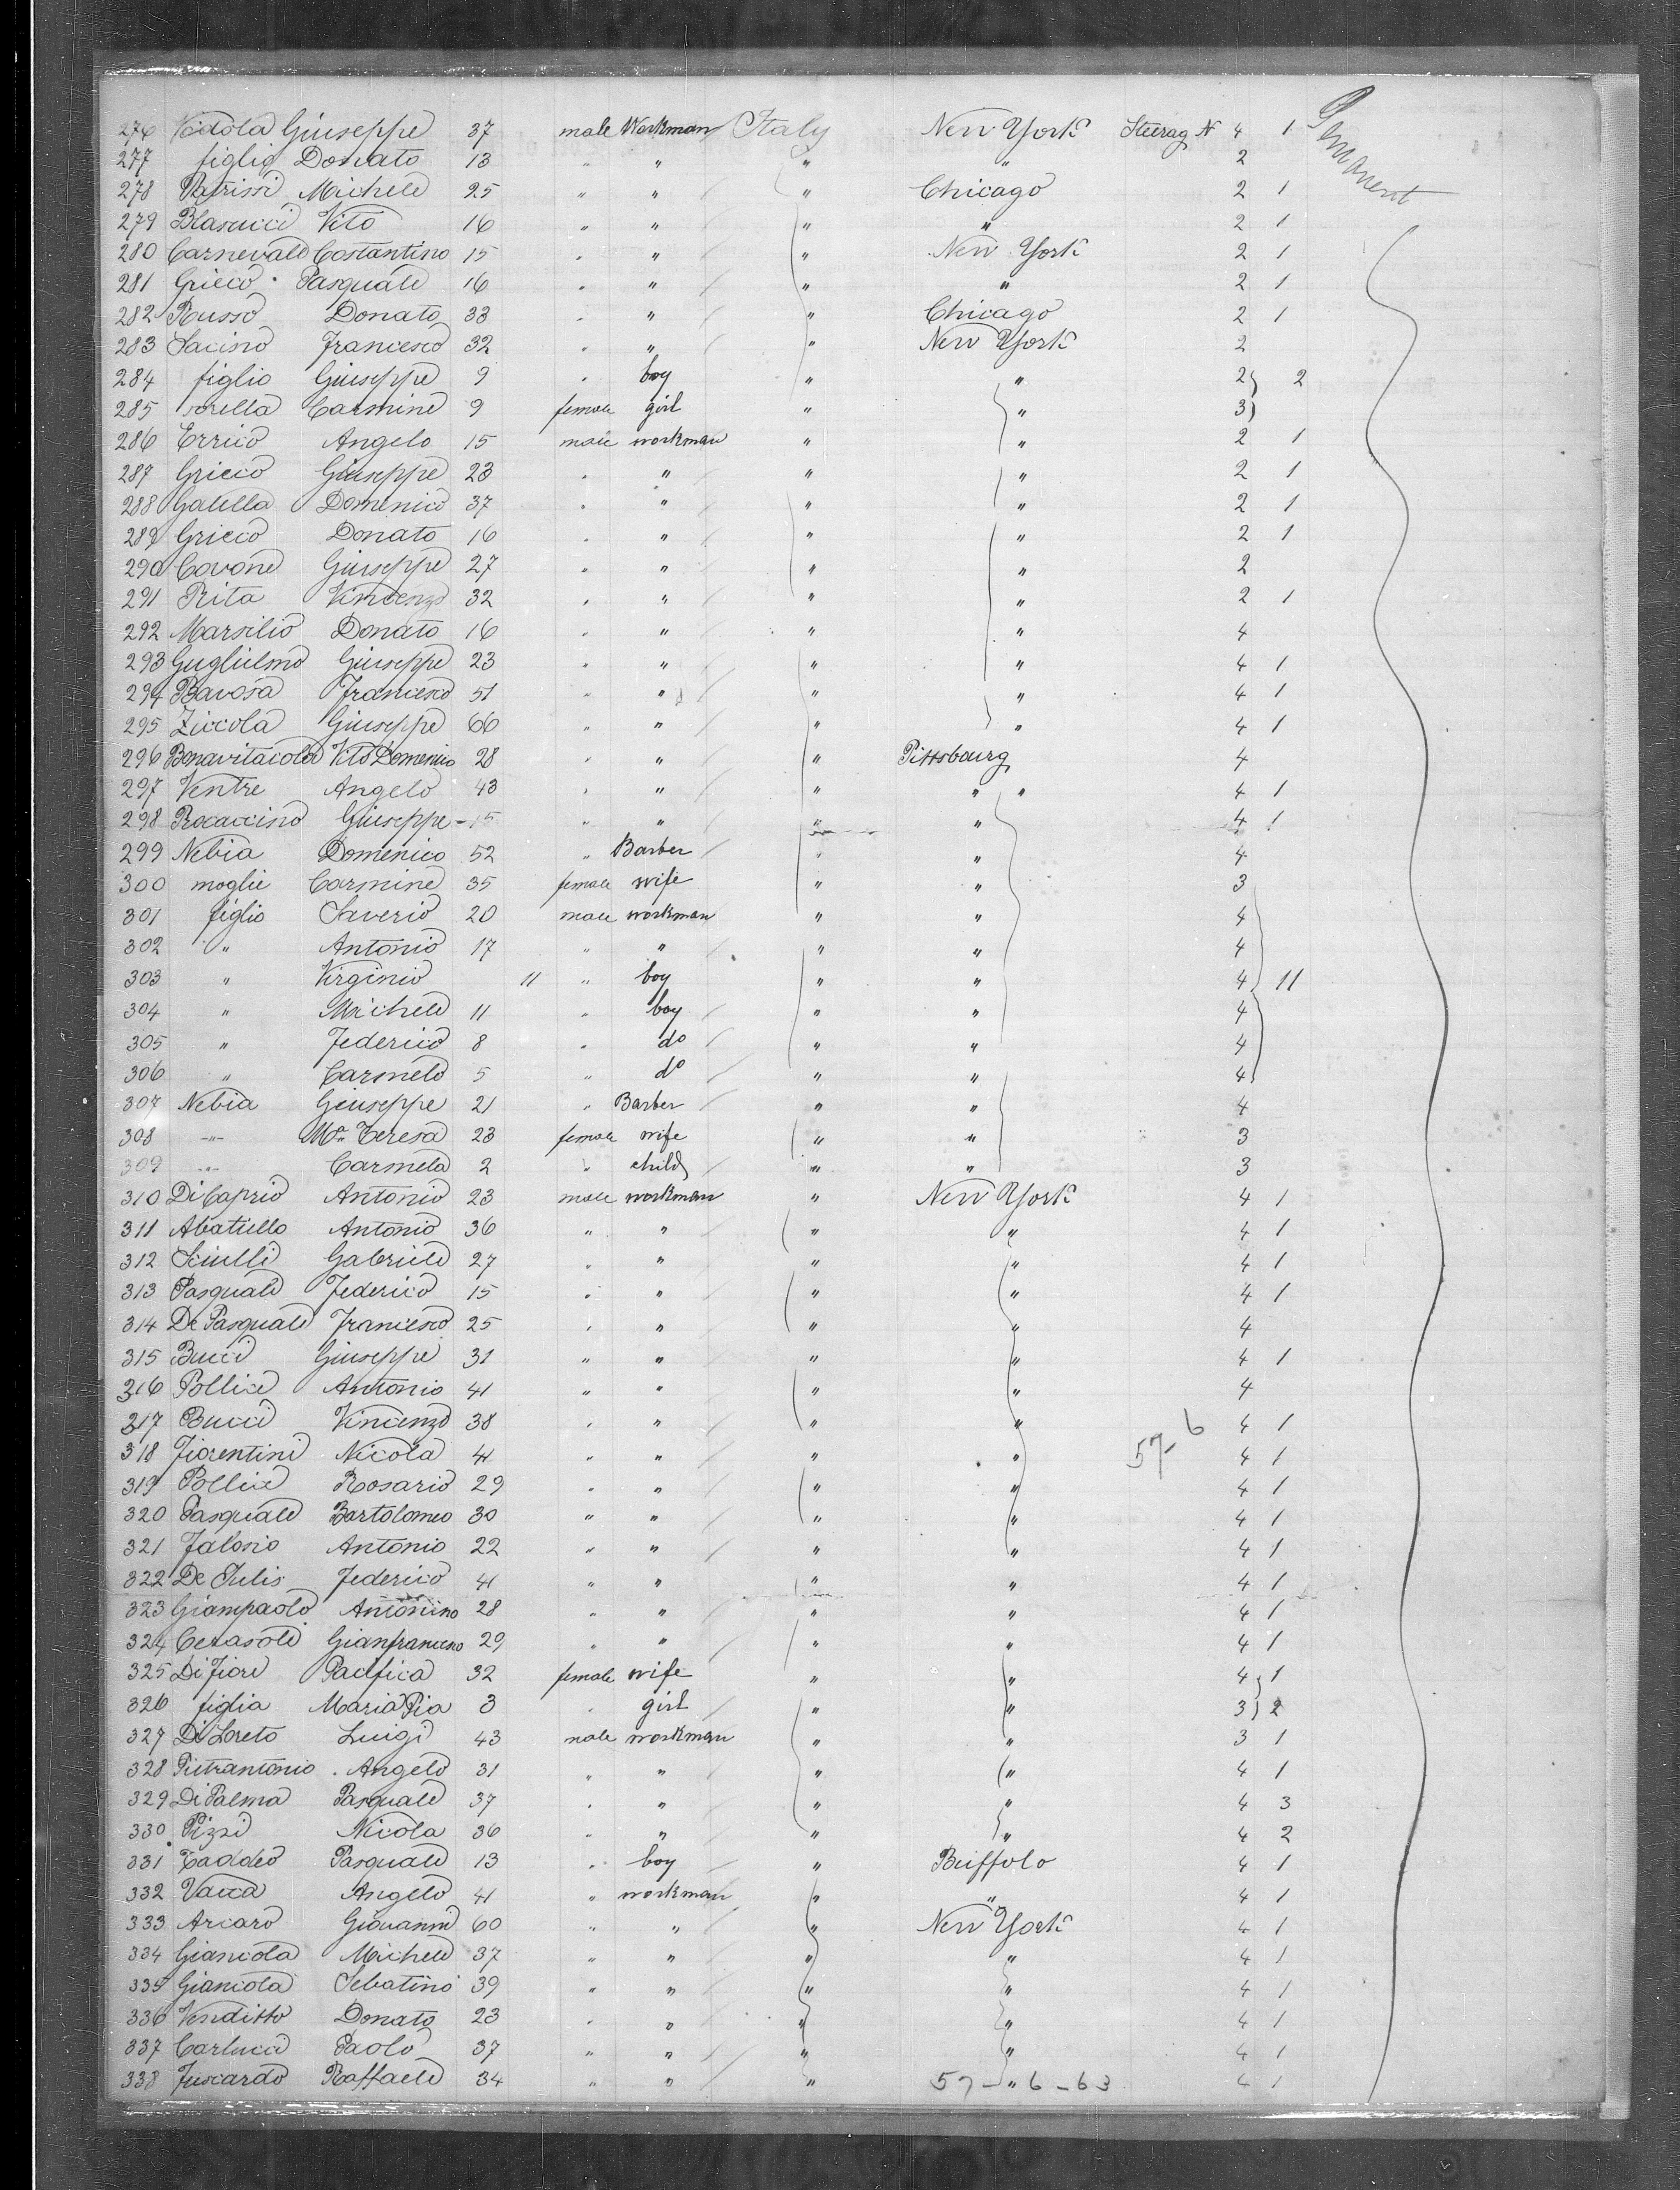 276 Vodola Giuseppe 37 male Workman Italy New York Steerag N 4 1 Permanent
277 figlio Donato 13 " " " " 2
278 Patrissi Michele 25 " " " Chicago 2 1
279 Blasucci Vito 16 " " " " 2 1
280 Carnevale Costantino 15 " " " New York 2 1
281 Grieco Pasquale 16 " " " " 2 1
282 Russo Donato 33 " " " Chicago 2 1
283 Sacino Francesco 32 " " " New York 2
284 figlio Giuseppe 9 " boy " " 2 2
285 sorella Carmine 9 female girl " " 3
286 Errico Angelo 15 male workman " " 2 1
287 Grieco Giuseppe 23 " " " " 2 1
288 Galella Domenico 37 " " " " 2 1
289 Grieco Donato 16 " " " " 2 1
290 Covone Giuseppe 27 " " " " 2
291 Rita Vincenzo 32 " " " " 2 1
292 Marsilio Donato 16 " " " " 4
293 Guglielmo Giuseppe 23 " " " " 4 1
294 Bavosa Francesco 51 " " " " 4 1
295 Ziccola Giuseppe 60 " " " " 4 1
296 Bonavitacola Vito Domenico 28 " " " Pittsbourg 4
297 Ventre Angelo 43 " " " " " 4 1
298 Procaccino Giuseppe - 15 " " " " 4 1
299 Nebia Domenico 52 " Barber " " 4
300 moglie Carmine 35 female wife " " 3
301 figlio Saverio 20 male workman " " 4
302 " Antonio 17 " " " " 4
303 " Virginio 11 " boy " " 4 11
304 " Michele 11 " boy " " 4
305 " Federico 8 " do " " 4
306 " Carmelo 5 " do " " 4
307 Nebia Giuseppe 21 " Barber " " 4
308 -"- Ma Teresa 23 female wife " " 3
309 -"- Carmela 2 " child " " 3
310 Di Caprio Antonio 23 male workman " New York 4 1
311 Abatiello Antonio 36 " " " " 4 1
312 Sciulli Gabriele 27 " " " " 4 1
313 Pasquale Federico 15 " " " " 4 1
314 De Pasquale Francesco 25 " " " " 4
315 Bucci Giuseppe 31 " " " " 4 1
316 Pollice Antonio 41 " " " " 4
317 Bucci Vincenzo 38 " " " " 4 1
318 Fiorentini Nicola 41 " " " " 57-6 4 1
319 Pollice Rosario 29 " " " " 4 1
320 Pasquale Bartolomeo 30 " " " " 4 1
321 Falosio Antonio 22 " " " " 4 1
322 De Iulis Federico 41 " " " " 4 1
323 Giampaolo Antonino 28 " " " " 4 1
324 Cerasoli Gianfrancesco 29 " " " " 4 1
325 Di Fiore Pacifica 32 female wife " " 4 1
326 figlia Maria Pia 3 " girl " " 3 2
327 Di Loreto Luigi 43 male workman " " 3 1
328 Pietrantonio Angelo 31 " " " " 4 1
329 Di Palma Pasquale 37 " " " " 4 3
330 Pizzi Nicola 36 " " " " 4 2
331 Taddeo Pasquale 13 " boy " Buffolo 4 1
332 Vacca Angelo 41 " workman " " 4 1
333 Arcaro Giovanni 60 " " " New York 4 1
334 Giancola Michele 37 " " " " 4 1
335 Giancola Sebatino 39 " " " " 4 1
336 Venditto Donato 23 " " " " 4 1
337 Carlucci Paolo 37 " " " " 4 1
338 Fuscardo Raffaele 34 " " " 57-"6-63 4 1